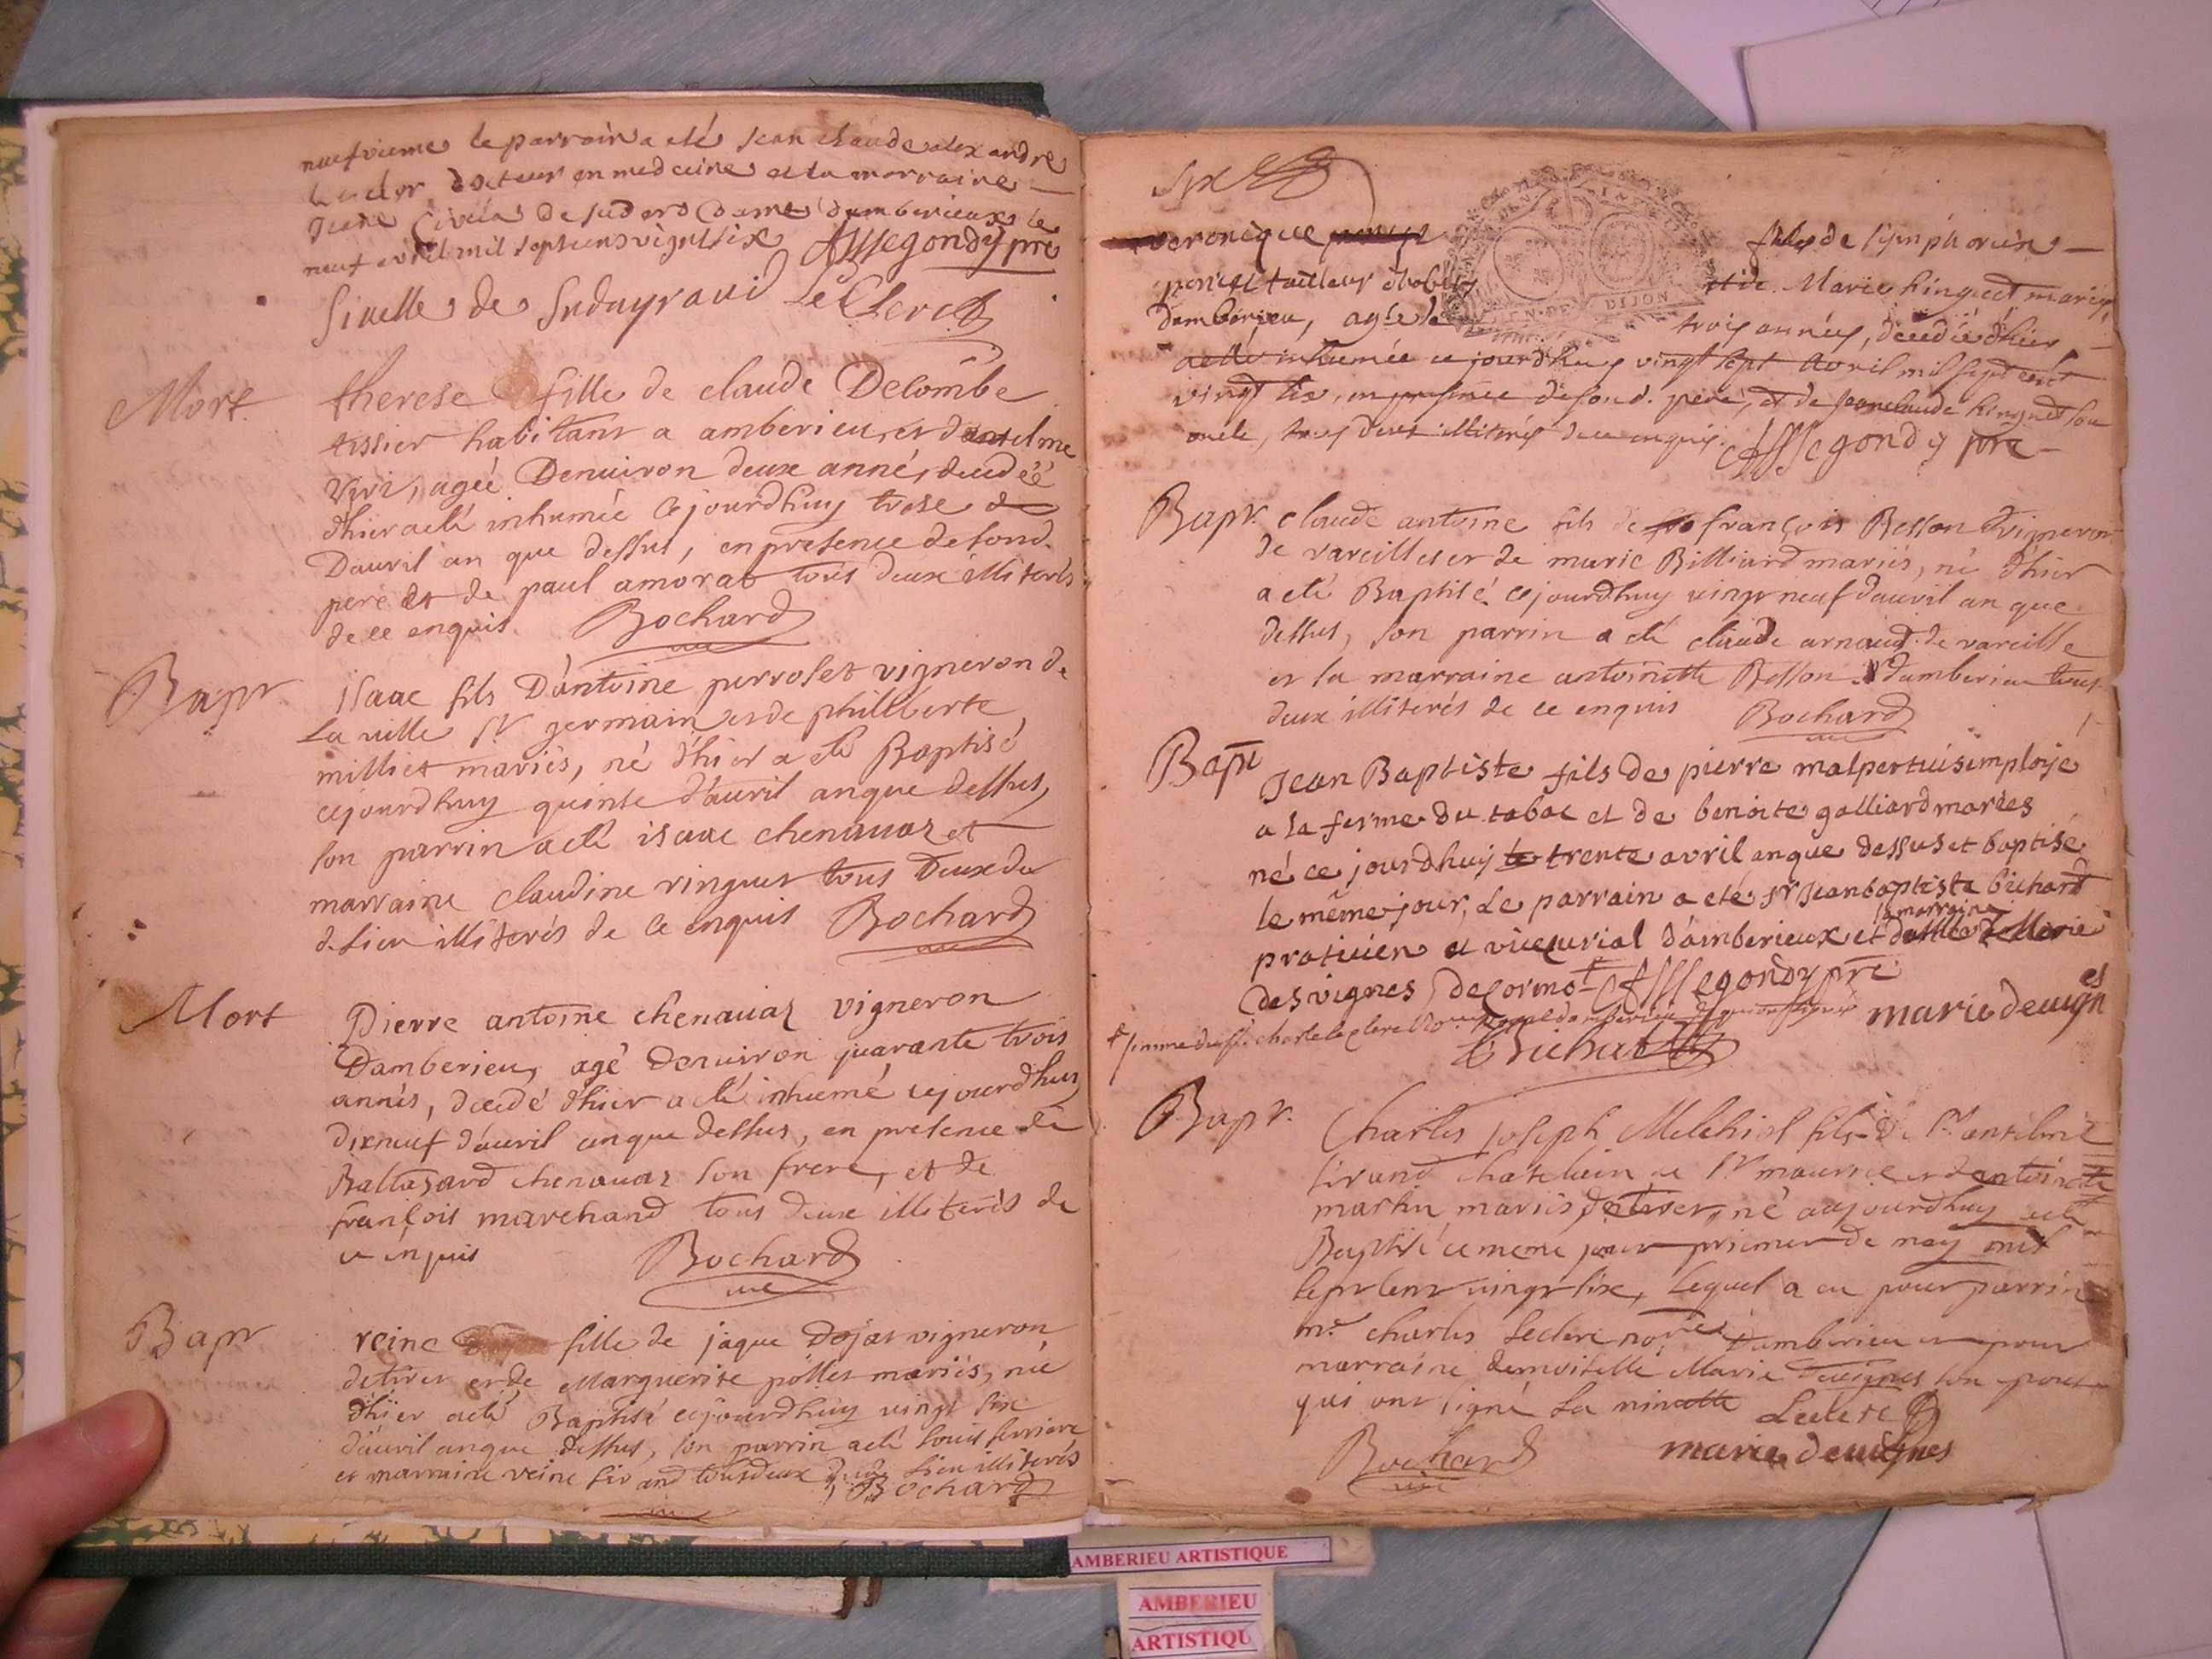 neufvieme le parroin a eté Jean claude alexandre
docteur en medecine et la marraine
dame damberieux le
neuf avril mil sept cens vignt six Assegondy pre
Sivelle de Le Clerc
Mort
therese fille de claude Decombe
tissier habitant a amberieu, et dantelme
agéé Denuiron deux anné, decedéé
d'hier a eté inhumée cejourd'huy treze
Dauril an que dessus, en presence de sond.
pere et de paul amorat tous deux illiterés
de ce enquis. Bochard
Bapt
isaac fils D'antoine perrolet vigneron de
La ville St germain et de philiberte
milliet mariés, né d'hier a eté Baptisé
cejourdhuy quinse d'auril an que dessus,
son parrin a eté isaac chenauaz et
marraine claudine ringuet tous Deux du
d. lieu illiterés de ce enquis Bochard
Mort
Pierre antoine chenauaz vigneron
Damberieu, agé denuiron quarante trois
annés, decedé d'hier a eté inhumé cejourdhuy
dixneuf d'auril an que dessus, en presence de
Baltasard chenauaz son frere, et de
françois marchand tous deux illiterés de
ce enquis Bochard
Bapt
reine fille de jaque Dojat vigneron
de tiret et de Marguerite pollet mariés, née
d'hier a eté Baptisé cejourdhuy vingt six
d'auril an que dessus, son parrin a eté louis ferriere
et marraine reine sirand tous deux dud. lieu illiterés
Bochard
six
veronique fille de simphorien
perret tailleur d'habits et de Marie hinguet mariés
damberieu, agée de trois années, decedée d'hier
a eté inhumée ce jourdhuy vingt sept avril mil sept cent
vingt six, en presence de sond. pere, et de Jeanclaude hinguet son
oncle, tous deux illiterés de ce enquis. Assegondy pre
Bapt.
claude antoine fils de françois Besson vigneron
de vareilles et de marie Billiard mariés, né d'hier
a eté Baptisé cejourdhuy vingt neuf d'auril an que
dessus, son parrin a eté claude arnaud de vareille
et la marraine antoinette Besson d'amberieu tous
deux illiterés de ce enquis Bochard
Bapt
Jean Baptiste fils de pierre malpertuis emploje
a la ferme du tabac et de benoite galliard mariés
né ce jourdhuij le trente avril an que dessus et baptisé
le même jour, Le parrain a eté sr Jean baptiste bichard
praticien et vicecurial d'amberieux et la marraine delle Marie
desvignes, de Cormo+ Assegondy pre
+ femme du sr charle le clerc damberieu marie deuignes
Bichard
Bapt.
Charles Joseph Melchiol fils de Sr antelme
sirand chatelain de St maurice et dantoinette
martin mariés de tiret, né aujourdhuy a eté
Baptisé ce meme jour premier de may mil
sept cent vingt six, Lequel a eu pour parrin
me charles Leclerc nore Damberieu et pour
marraine demoiselle Marie Deuignes son epouse
qui ont signé La minutte Leclerc
Bochard marie deuignes
DIJON
AMBERIEU ARTISTIQUE
AMBERIEU
ARTISTIQU